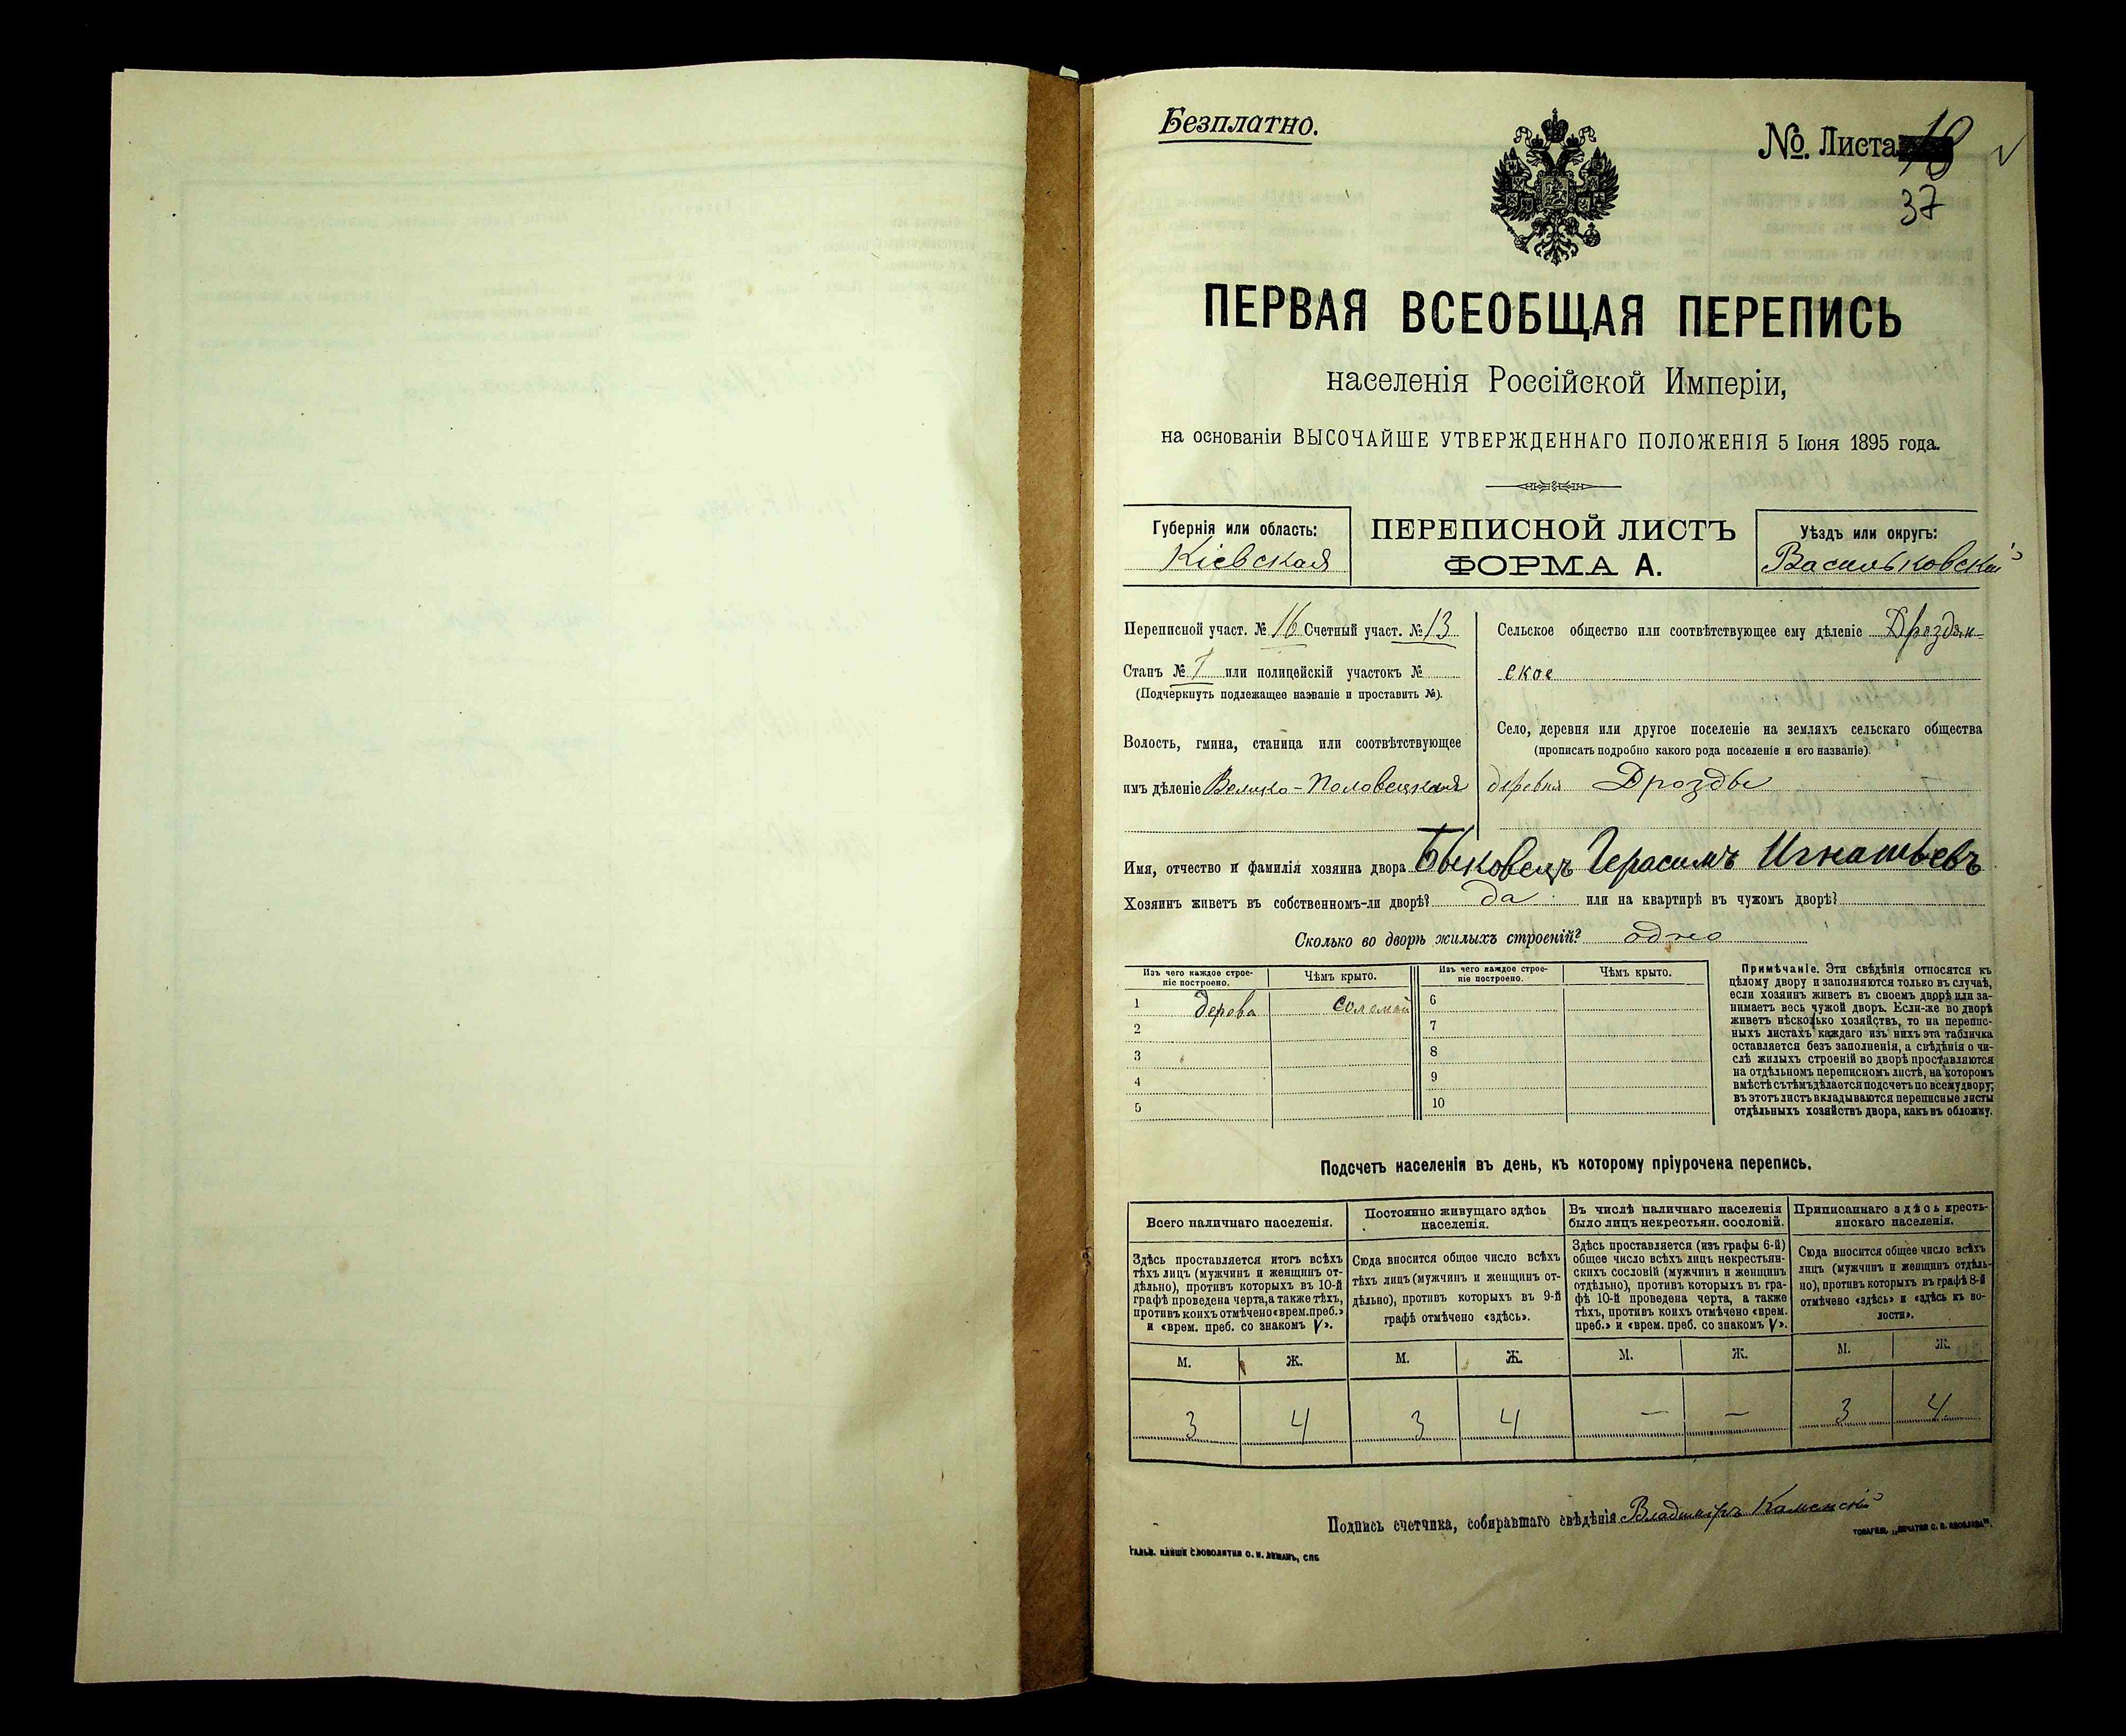 Безплатно.
№. Листа 18
37
ПЕРВАЯ ВСЕОБЩАЯ ПЕРЕПИСЬ
населенія Россійской Имперіи,
на основаніи ВЫСОЧАЙШЕ УТВЕРЖДЕННАГО ПОЛОЖЕНІЯ 5 Іюня 1895 года.
Губернія или область:
Кіевская
ПЕРЕПИСНОЙ ЛИСТЪ
ФОРМА А.
Уѣздъ или округъ:
Васильковскій
Переписной участ. № 16 Счетный участ. № 13
Станъ № 1 или полицейскій участокъ №
(Подчеркнуть подлежащее названіе и проставить №).
Волость, гмина, станица или соотвѣтствующее
имъ дѣленіе Велико-Половецкая
Сельское общество или соотвѣтствующее ему дѣленіе Дроздян-
ское
Село, деревня или другое поселеніе на земляхъ сельскаго общества
(прописать подробно какого рода поселеніе и его названіе).
деревня Дрозды
Имя, отчество и фамилія хозяина двора Быковецъ Герасимъ Игнатьевъ
Хозяинъ живетъ въ собственномъ-ли дворѣ? да или на квартирѣ въ чужомъ дворѣ?
Сколько во дворѣ жилыхъ строеній? одно
Изъ чего каждое строе-
ніе построено.
Чѣмъ крыто.
1 дерева соломой
2
3
4
5
Изъ чего каждое строе-
ніе построено.
Чѣмъ крыто.
6
7
8
9
10
Примѣчаніе. Эти свѣдѣнія относятся къ
цѣлому двору и заполняются только въ случаѣ,
если хозяинъ живетъ въ своемъ дворѣ или за-
нимаетъ весь чужой дворъ. Если-же во дворѣ
живетъ нѣсколько хозяйствъ, то на перепис-
ныхъ листахъ каждаго изъ нихъ эта табличка
оставляется безъ заполненія, а свѣдѣнія о чи-
слѣ жилыхъ строеній во дворѣ проставляются
на отдѣльномъ переписномъ листѣ, на которомъ
вмѣстѣ сътѣмъ дѣлается подсчетъ по всему двору;
въ этотъ листъ вкладываются переписные листы
отдѣльныхъ хозяйствъ двора, какъ въ обложку.
Подсчетъ населенія въ день, къ которому пріурочена перепись.
Всего наличнаго населенія.
Здѣсь проставляется итогъ всѣхъ
тѣхъ лицъ (мужчинъ и женщинъ от-
дѣльно), противъ которыхъ въ 10-й
графѣ проведена черта, а также тѣхъ,
противъ коихъ отмѣчено «врем. преб.»
и «врем. преб. со знакомъ V».
М. Ж.
3 4
Постоянно живущаго здѣсь
населенія.
Сюда вносится общее число всѣхъ
тѣхъ лицъ (мужчинъ и женщинъ от-
дѣльно), противъ которыхъ въ 9-й
графѣ отмѣчено «здѣсь».
М. Ж.
3 4
Въ числѣ наличнаго населенія
было лицъ некрестьян. сословій.
Здѣсь проставляется (изъ графы 6-й)
общее число всѣхъ лицъ некрестьян-
скихъ сословій (мужчинъ и женщинъ
отдѣльно), противъ которыхъ въ гра-
фѣ 10-й проведена черта, а также
тѣхъ, противъ коихъ отмѣчено «врем.
преб.» и «врем. преб. со знакомъ V».
М. Ж.
— —
Приписаннаго здѣсь кресть-
янскаго населенія.
Сюда вносится общее число всѣхъ
лицъ (мужчинъ и женщинъ отдѣль-
но), противъ которыхъ въ графѣ 8-й
отмѣчено «здѣсь» и «здѣсь къ во-
лости».
М. Ж.
3 4
Подпись счетчика, собиравшаго свѣдѣнія Владиміръ Каменскій
ТОВАРИЩ. „ПЕЧАТНЯ С. П. ЯКОВЛЕВА".
ГАЛЬВ. КЛИШЕ СЛОВОЛИТНИ О. И. ЛЕМАНЪ, СПБ